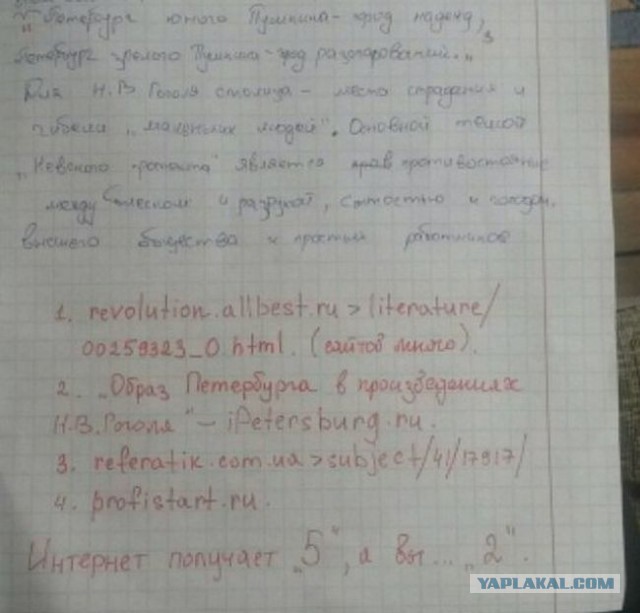 „Петербург юного Пушкина - город надежд,
Петербург зрелого Пушкина - город разочарований."
Для Н.В Гоголя столица - место страдания и
гибели „маленьких людей". Основной темой
„Невского проспекта" является противостояние
между блеском и разрухой, сытостью и голодом,
высшего общества и простых работников
1. revolution.allbest.ru > literature/
00259323_0.html. (сайтов много).
2. „Образ Петербурга в произведениях
Н.В.Гоголя" - iPetersburg.ru.
3. referatik.com.ua>subject/41/17917/
4. profistart.ru.
Интернет получает „5", а вы... „2".
YAPLAKAL.COM